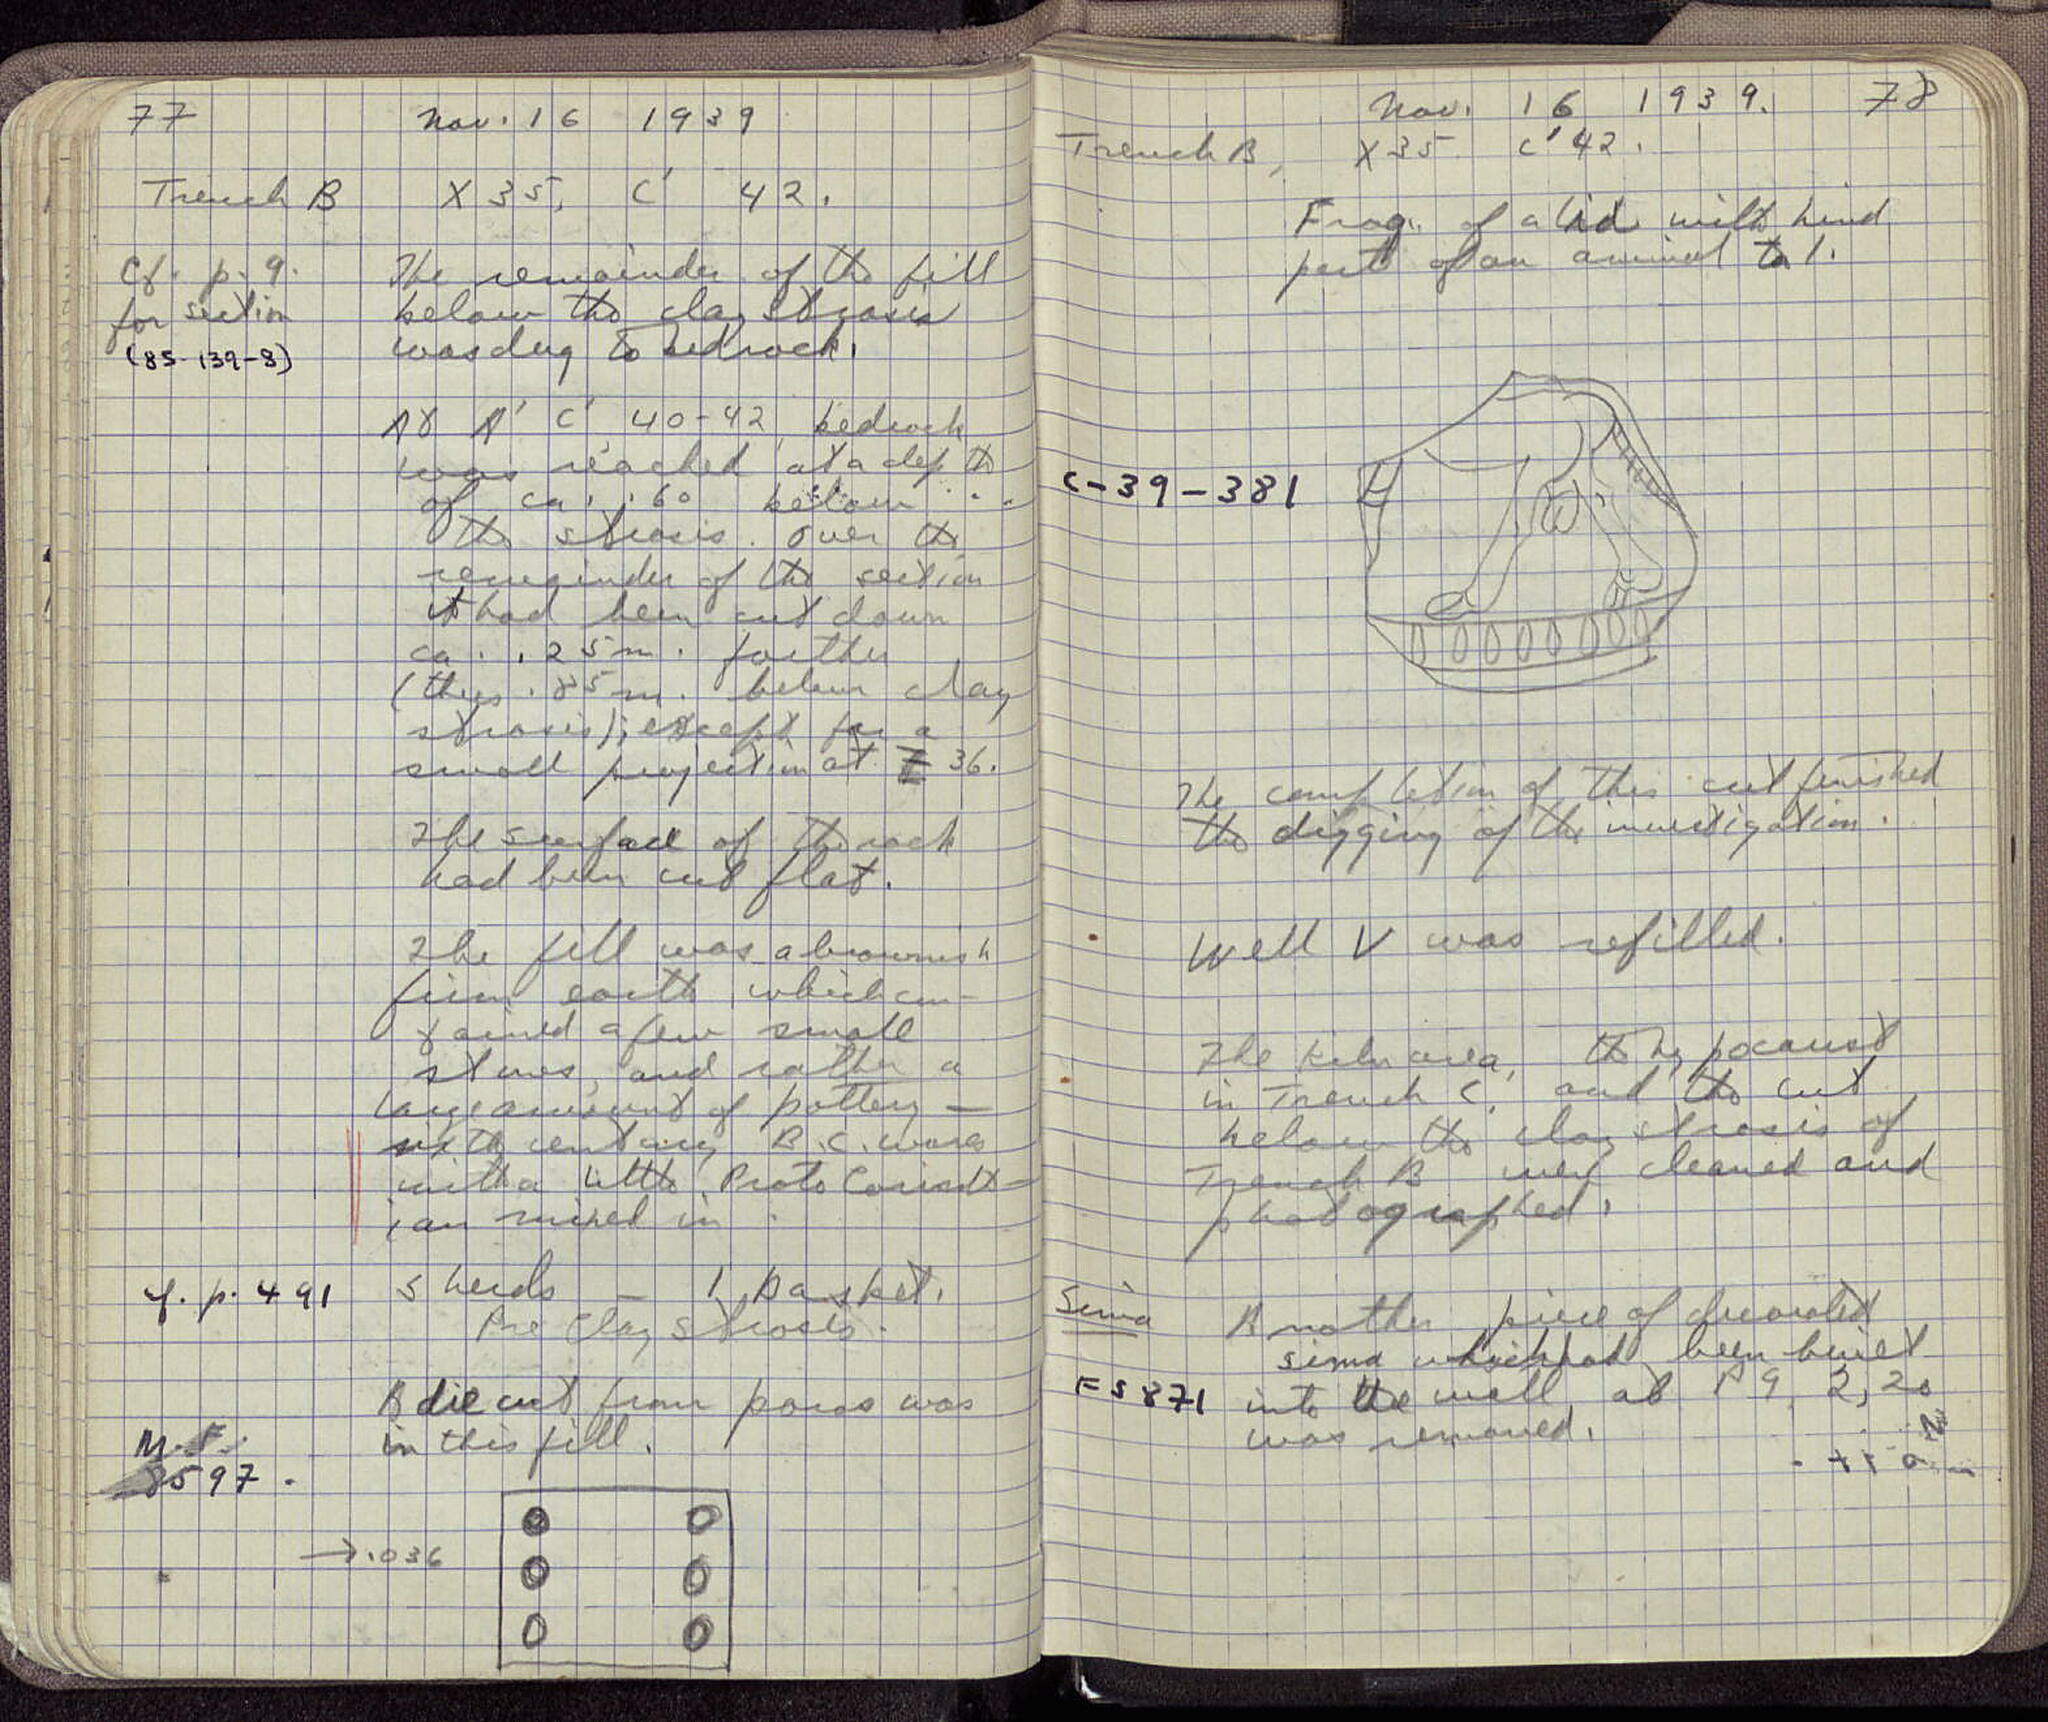 77
Nov. 16 1939
Trench B X 35, C' 42.
Cf. p. 9.
for section
(85-139-8)
The remainder of the fill
below the clay strosis
was dug to bedrock.
At A' C' 40-42, bedrock
was reached at a depth
of ca. .60 below
the strosis. Over the
remainder of the section
it had been cut down
ca. .25 m. further
(thus .85 m. below clay
strosis); except for a
small projection at Z 36.
The surface of the rock
had been cut flat.
The fill was a brownish
firm earth which con-
tained a few small
stones, and rather a
large amount of pottery —
sixth century B.C. wares
with a little Proto Corinth-
ian mixed in.
cf. p. 491
Sherds — 1 basket.
Pre Clay Strosis.
A die cut from poros was
in this fill.
M.F.
8597.
→ .036
Nov. 16 1939. 78
Trench B, X 35 C' 42.
Frag. of a lid with hind
part of an animal to l.
C-39-381
The completion of this cut finished
the digging of the investigation.
Well V was refilled.
The kiln area, the hypocaust
in Trench C, and the cut
below the clay strosis of
Trench B were cleaned and
photographed.
Sima
Another piece of decorated
sima which had been built
FS 871
into the well at P 9, 2, 20
was removed.